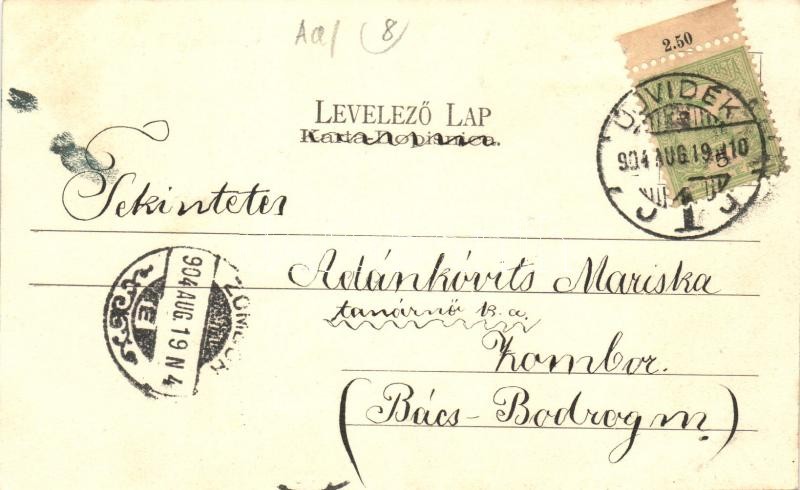 Aa/ (8)
2.50
LEVELEZŐ LAP
Karta Dopisnica.
ÚJVIDÉK
904 AUG. 19. d10
Sekintetes
Adánkóvits Mariska
tanárnő k. a.
Zombor.
(Bács-Bodrog m.)
ZOMBOR
904 AUG. 19 N 4